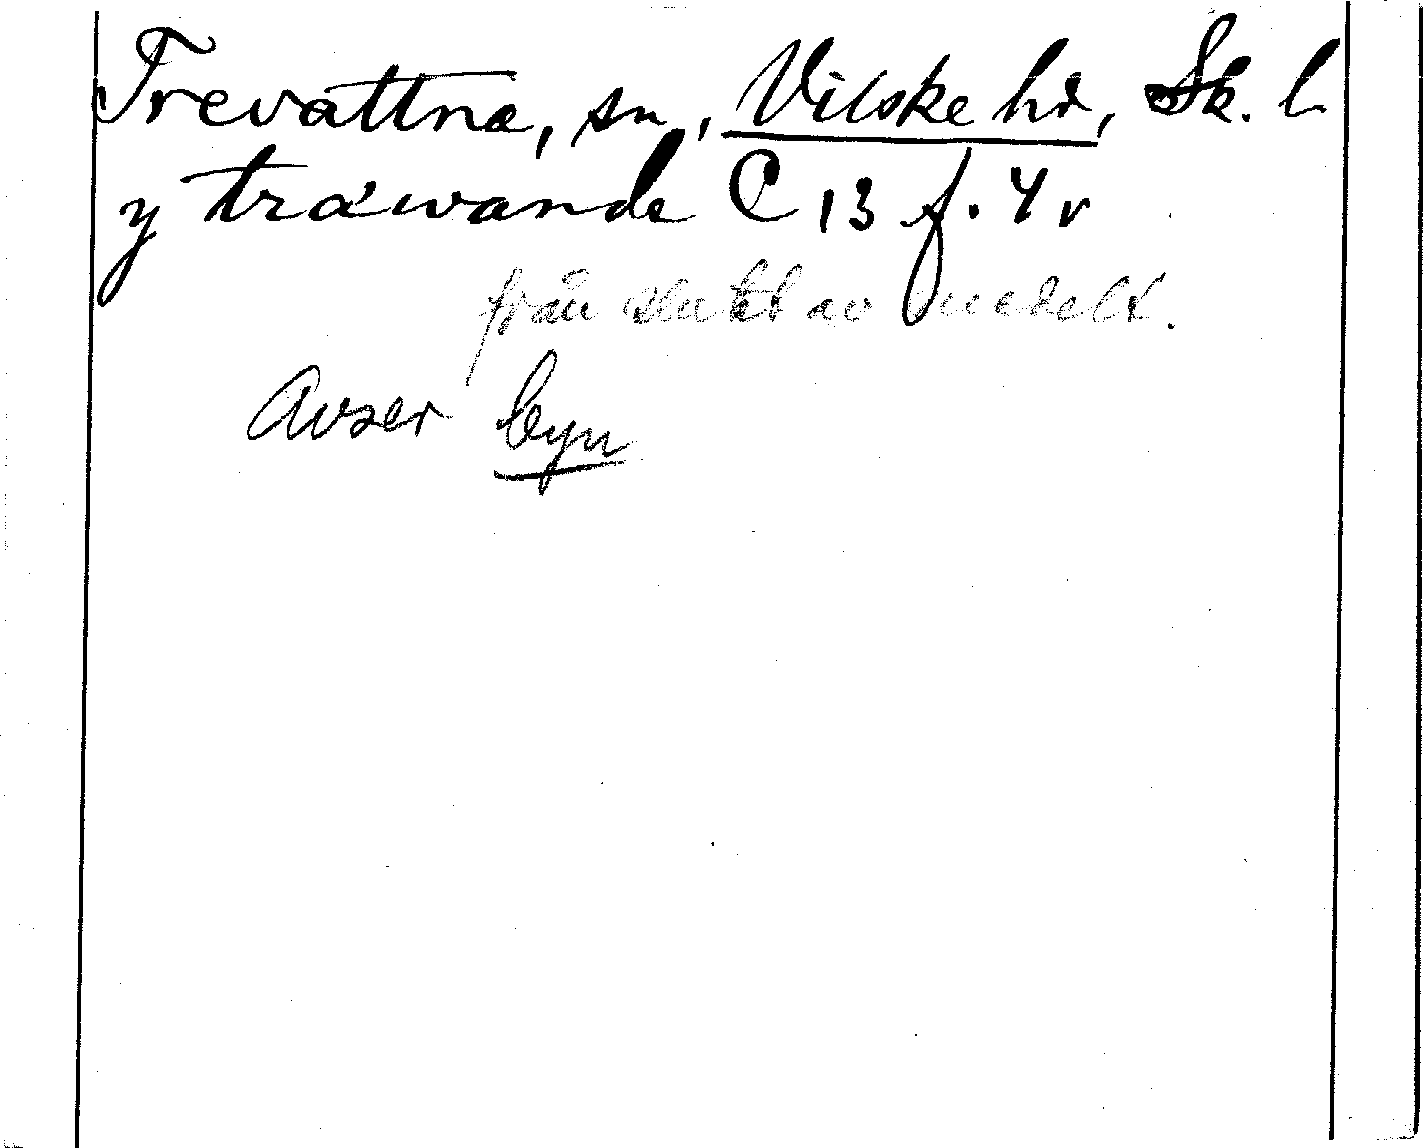 Trevattna, sn, Vilske hd, Sk. l
y trawande C 13 f. 4 v
från slutet av medelt.
Avser byn